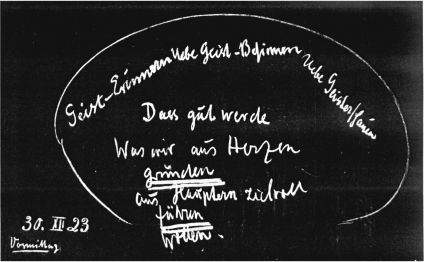 Geist-Erinnern Uebe Geist-Besinnen Uebe Geisterschauen
Dass gut werde
Was wir aus Herzen
gründen
aus Häuptern zielvoll
führen
wollen.
30. XII 23
Vormittag